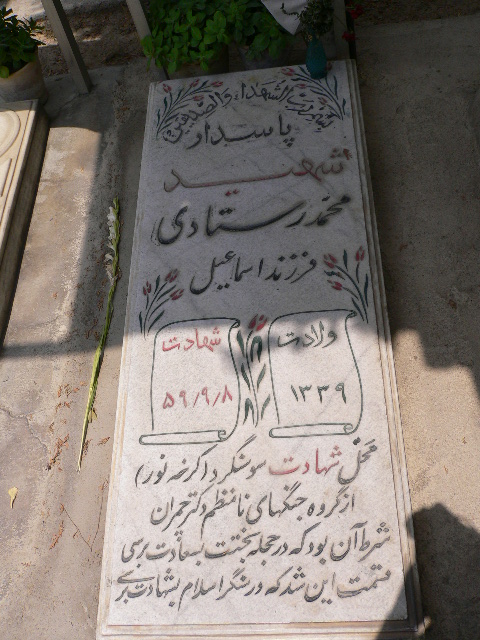 بسم رب الشهداء والصدیقین
پاسدار
شهید
محمد رستادی
فرزند اسماعیل
ولادت
۱۳۳۹
شهادت
۵۹/۹/۸
محل شهادت سوسنگرد (کرخه نور)
از گروه جنگهای نامنظم دکتر چمران
شرط آن بود که در حجله بختت بسعادت برسی
قسمت این شد که در سنگر اسلام بشهادت برسی